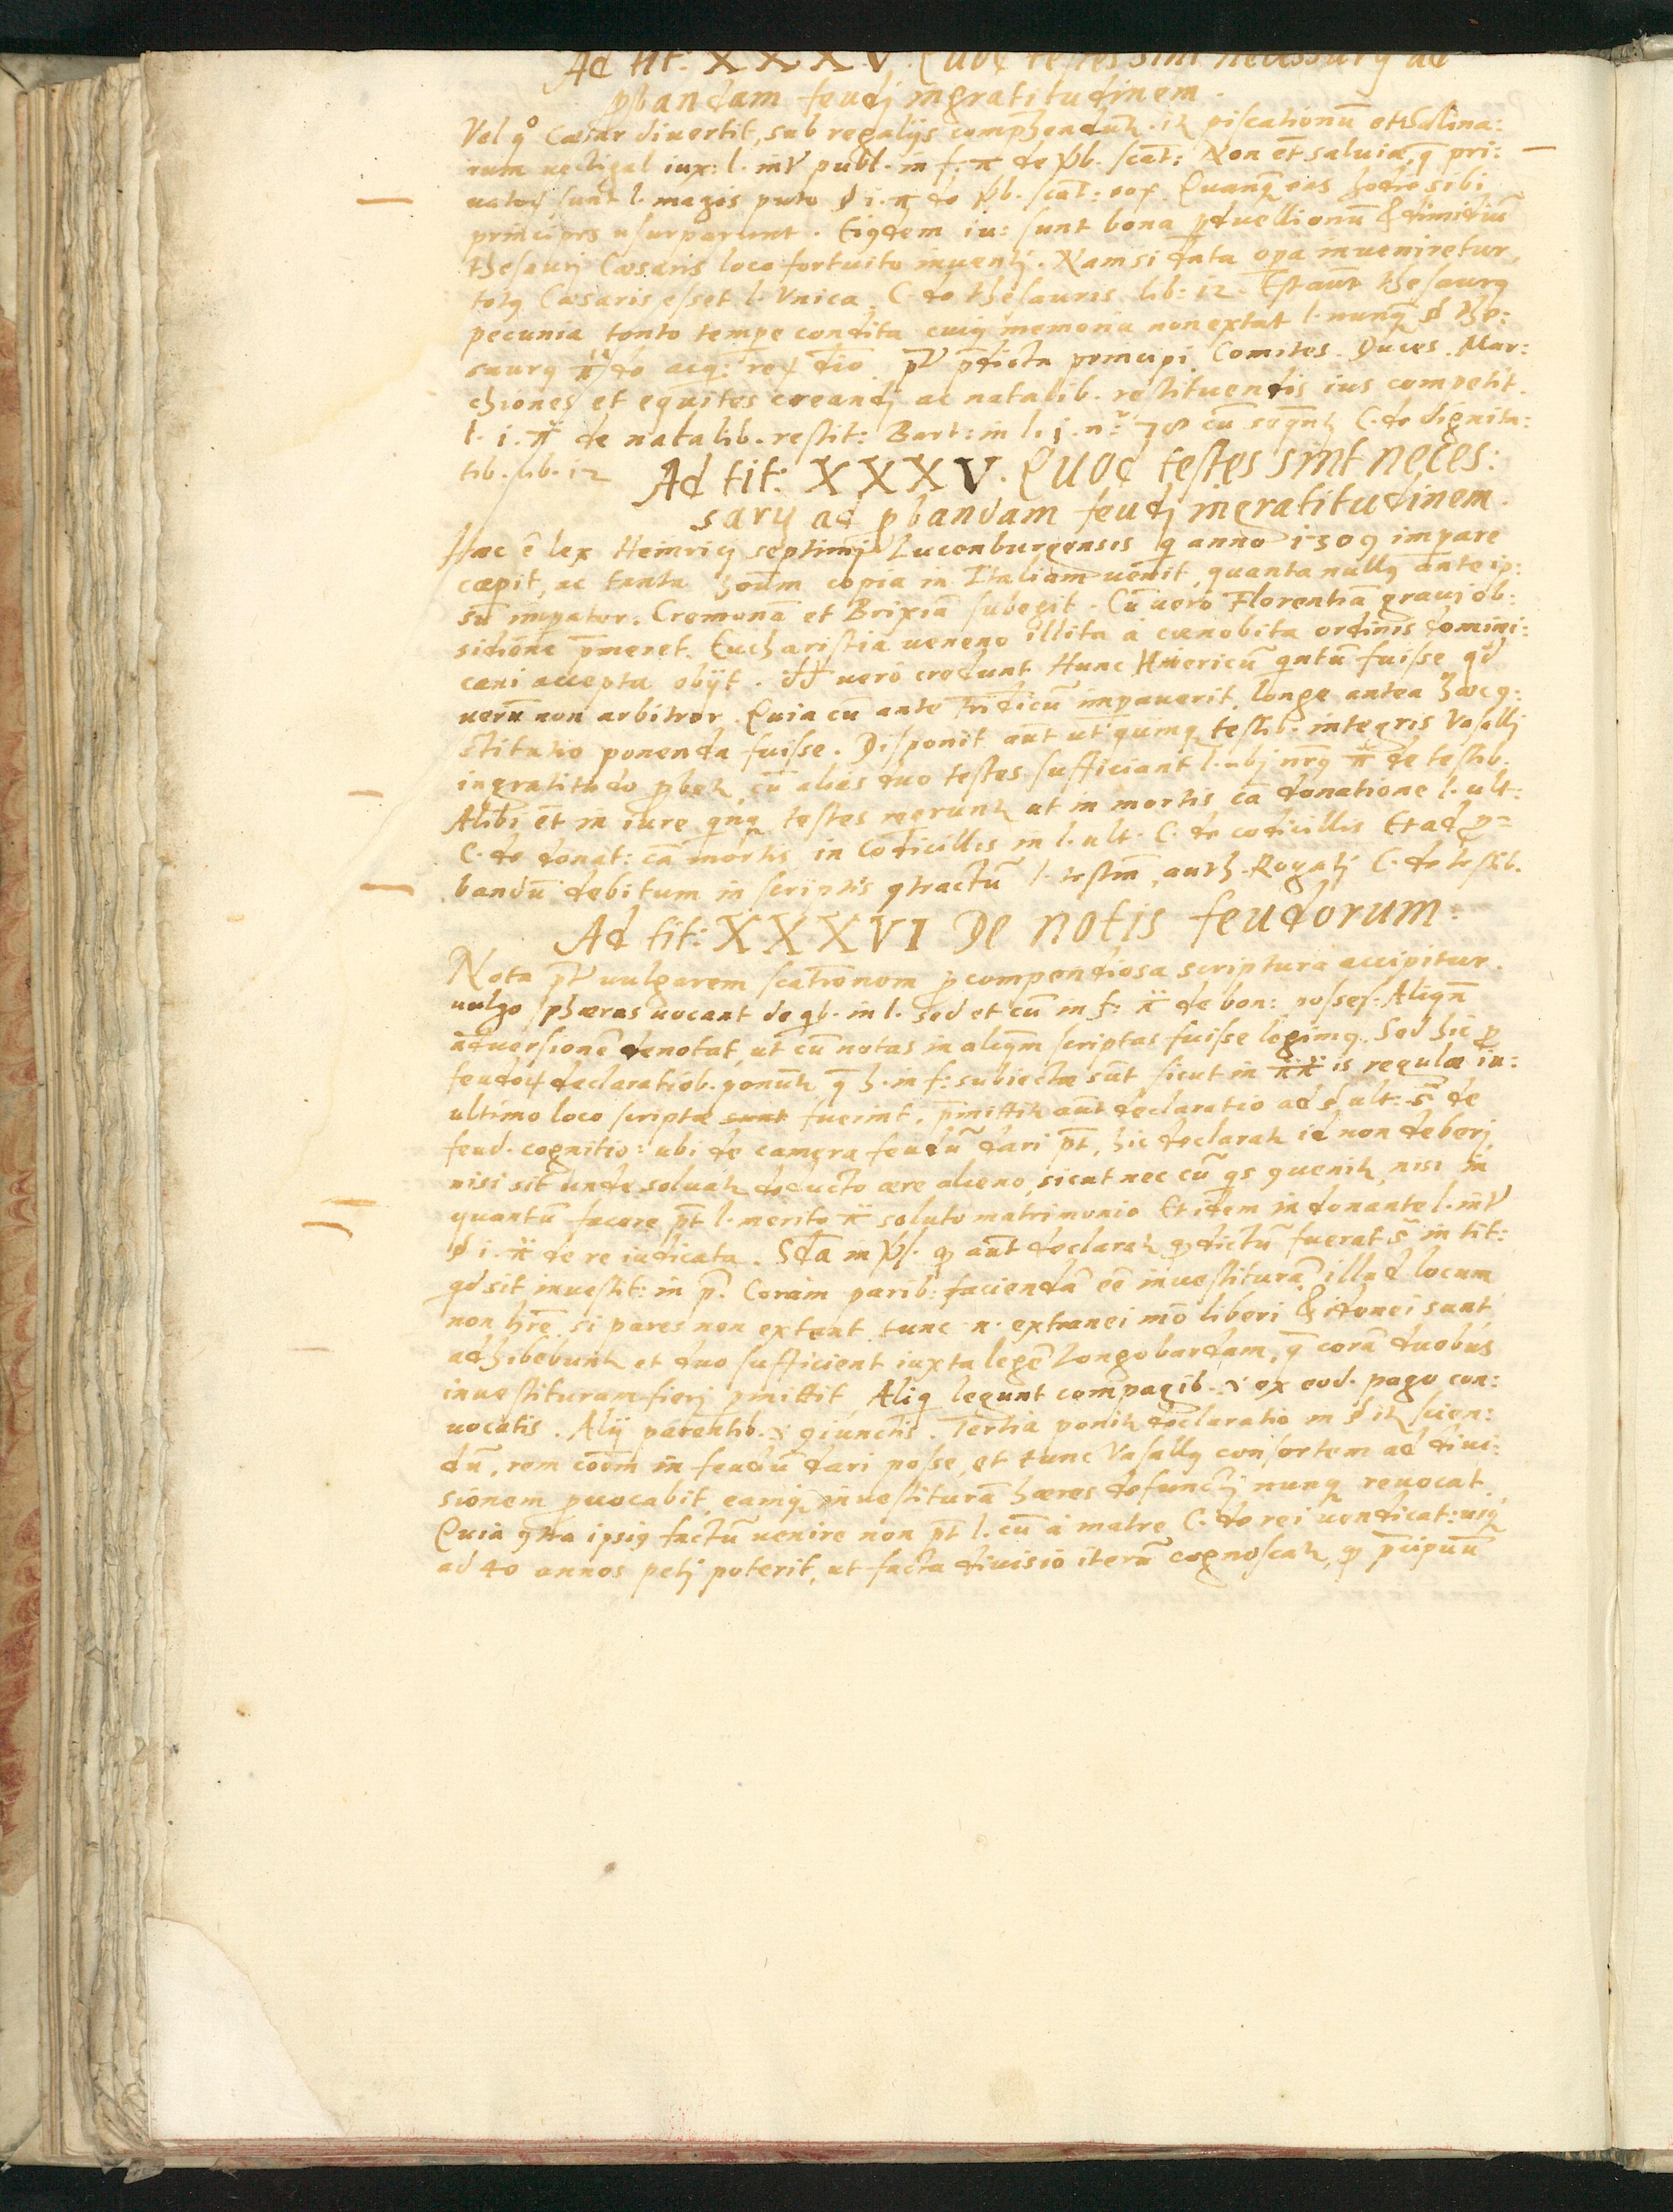 Ad tit: XXXV. Quot testes sint necessarij ad
pbandam feudj ingratitudinem.
Vel qo Cæsar divertit, sub regalijs comphendunt. it piscationū et Salina:
rum vectigal iux: l. int publ. in f. π de vb. scāt: Non et̄ salvia, q̄ pri:
vator sunt l. magis puto § i. π de vb. scat: eor. Quanq̄ eas hodie sibi
principes usurparunt. Eiqdem iu: sunt bona pduellionū & dimidiū
thesaurj Cæsaris loco fortuito inventj. Nam si data opa inveniretur,
totq Cæsaris esset l. Unica. C. de thesauris lib: 12. Est aūt thesaurq
pecunia tanto tempe condita cuiq memoria non extat l. nunq̄ § The:
saurq π de acq: rer dio. pt pdicta principi Comites. Duces. Mar:
chiones et equites creandj ac natalib. restituendis ius competit.
l. i. π de natalib. restit: Bart: in l. j. nr 78 cū seqnt C. de dignita:
tib. lib. 12 Ad tit: XXXV. Quot testes sint neces:
sarij ad pbandam feudj ingratitudinem.
Hæc ē lex Heinricj septimj Lucenburgensis q anno 1309 impare
cœpit, ac tanta hoūm copia in Italiam venit, quanta nullq ante ip:
sū impator. Cremonā et Brixiā subegit. Cū vero Florentiā gravj ob:
sidione pmeret. Eucharistia veneno illita á cœnobita ordinis domini:
cani accepta obijt. dd vero credunt Hunc Heinericū qntū fuisse qd
verū non arbitror. Quia cū ante Fridicū impaverit, longe antea hæc q:
stitutio ponenda fuisse. Disponit aūt ut quinq testib. integris Vasallj
ingratitudo pbet, cū alias duo testes sufficiant l. ubj nrq π de testib.
Alibi et̄ in iure qnq testes reqrunt ut in mortis cā donatione l. ult:
C. de donat: cā mortis in Codicillis in l. ult. C. de codicillis Et ad p=
bandū debitum in scriptis qtractū l. testm̄, auth. Rogatj C. de testib.
Ad tit: XXXVI De notis feudorum:
Nota pt vulgarem scationem p compendiosa scriptura accipitur.
vulgo sphæras vocant de qb. in l. sed et cū in f: π de bon: posses: Aliqn̄
adversionē denotat, ut cū notas in aliqm̄ scriptas fuisse legimq. Sed hic p
feudor declaratiob. ponunt q̄ h. in f: subiectæ sūt sicut in ππ is regulæ iu:
ultimo loco scriptæ sunt fuerint. pmittit aūt declaratio ad § ult: s̄ de
feud. cognitio: ubi de camera feudū dari pt̄, hic declarat id non deberj,
nisi sit unde solvat deducto ære alieno, sicut nec cū qs qvenit, nisi in
quantū facere pt̄ l. merito π soluto matrimonio Et idem in donante l. int
§ i. π de re iudicata. Sda in vl. q aūt declarat q dictū fuerat s̄ in tit:
qd sit investit: in p. Coram parib: faciendā eē investiturā, illud locum
non hrē si pares non extant tunc n. extranei mo liberi & idonei sunt
adhibebunt et duo sufficient iuxta legē Longobardam, q̄ corā duobus
investituram fierj pmittit Aliq legunt compagib. i ex eod. pago con:
vocatis. Alij parentib. i qiunctis. Tertia ponit declaratio in § it scien:
dū, rem cōem in feudū dari posse, et tunc Vasallq consortem ad divi:
sionem pvocabit, eamq investiturā hæres defunctj nunq revocat.
Quia qtra ipsiq factū venire non pt̄ l. cū á matre C. de rei vendicat: usq
ad 40 annos petj poterit, ut facta divisio iterū cognoscat, q pcipuū